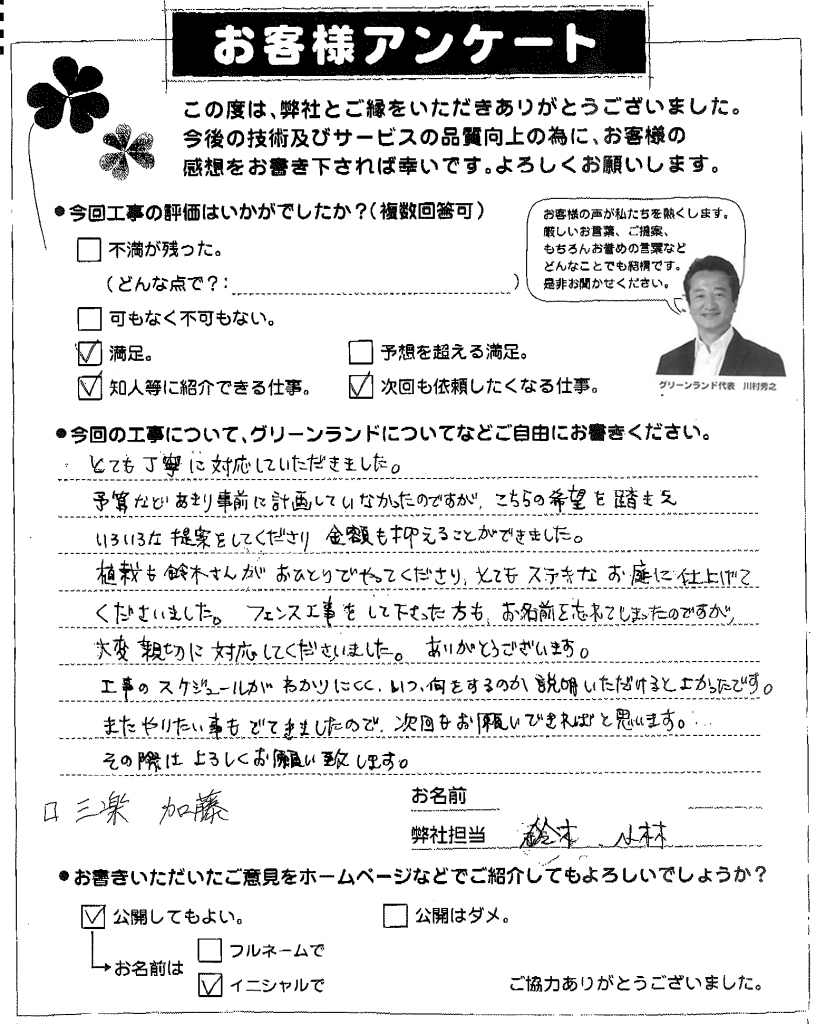 お客様アンケート
この度は、弊社とご縁をいただきありがとうございました。
今後の技術及びサービスの品質向上の為に、お客様の
感想をお書き下されば幸いです。よろしくお願いします。
●今回工事の評価はいかがでしたか?(複数回答可)
お客様の声が私たちを熱くします。
厳しいお言葉、ご提案、
もちろんお誉めの言葉など
どんなことでも結構です。
是非お聞かせください。
□ 不満が残った。
(どんな点で?: )
□ 可もなく不可もない。
☑ 満足。 □ 予想を超える満足。
☑ 知人等に紹介できる仕事。 ☑ 次回も依頼したくなる仕事。
グリーンランド代表 川村秀之
●今回の工事について、グリーンランドについてなどご自由にお書きください。
とても丁寧に対応していただきました。
予算などあまり事前に計画していなかったのですが、こちらの希望を踏まえ
いろいろな提案をしてくださり 金額も抑えることができました。
植栽も鈴木さんがおひとりでやってくださり、とてもステキなお庭に仕上げて
くださいました。フェンス工事をして下さった方も、お名前を忘れてしまったのですが、
大変親切に対応してくださいました。ありがとうございます。
工事のスケジュールがわかりにくく、いつ、何をするのか説明いただけるとよかったです。
またやりたい事もでてきましたので、次回もお願いできればと思います。
その際はよろしくお願い致します。
三楽 加藤
お名前
弊社担当 鈴木、小林
●お書きいただいたご意見をホームページなどでご紹介してもよろしいでしょうか?
☑ 公開してもよい。 □ 公開はダメ。
→お名前は □ フルネームで
☑ イニシャルで
ご協力ありがとうございました。